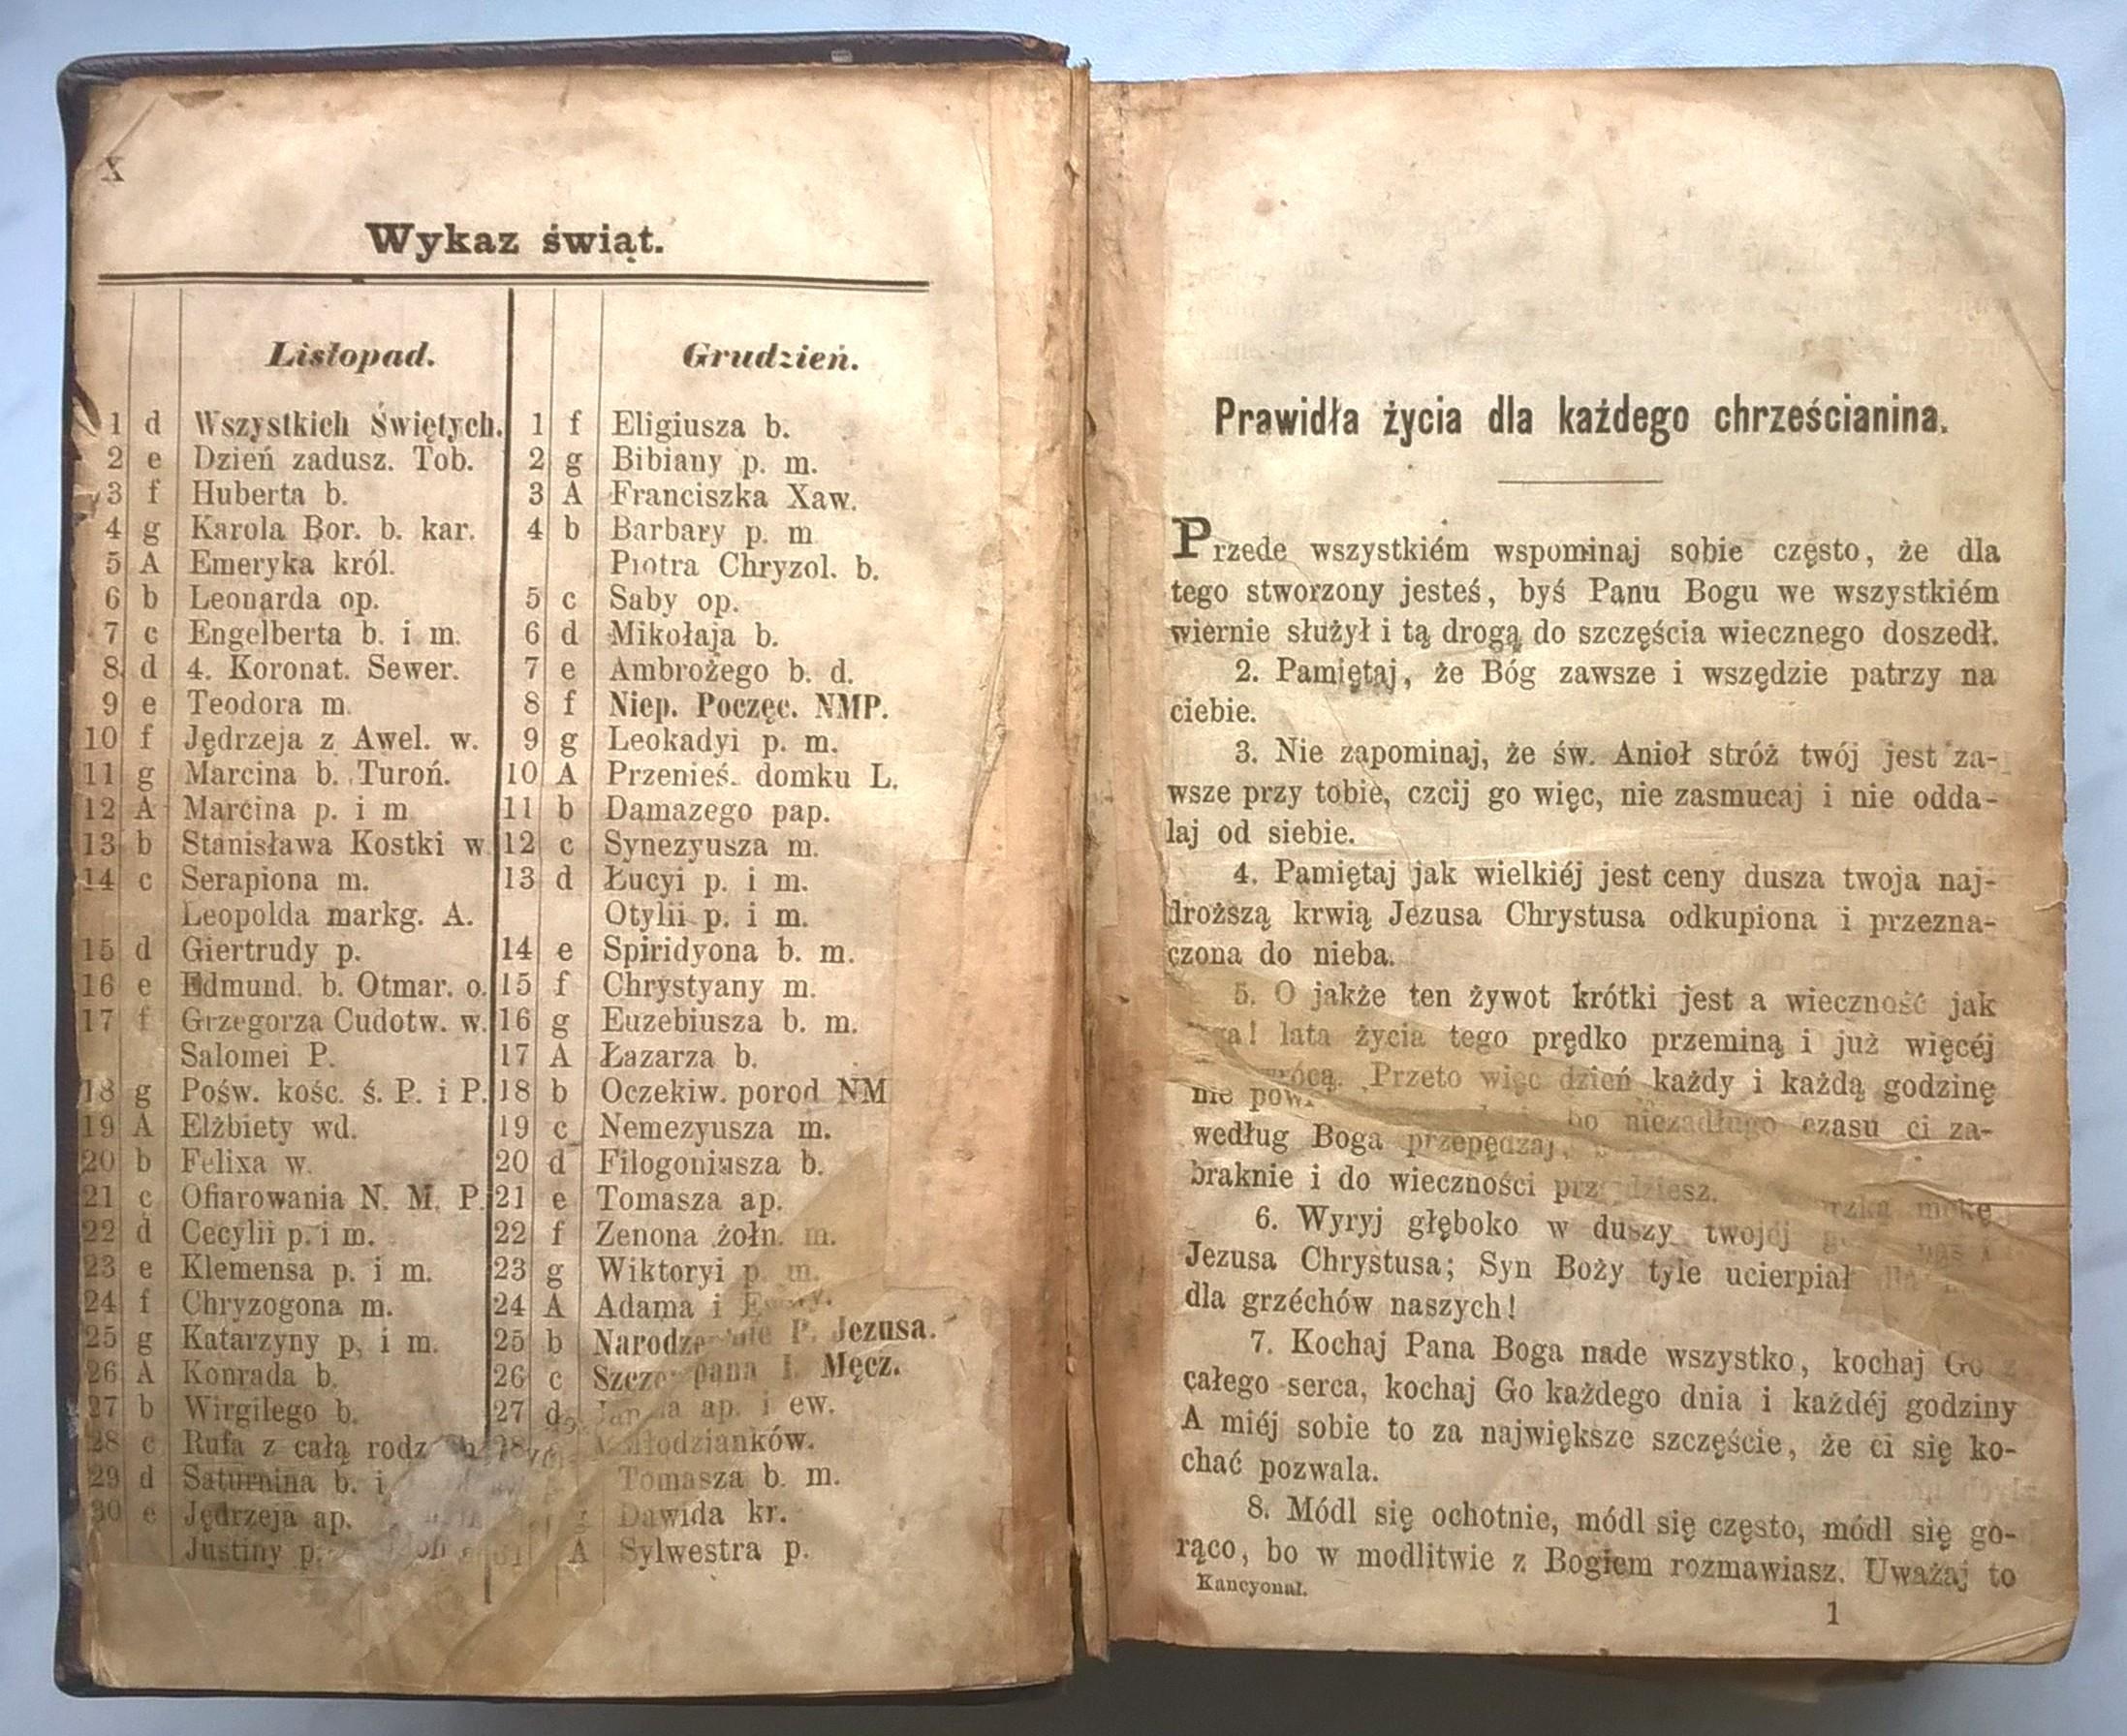 X
Wykaz świąt.
Listopad.
1 d Wszystkich Świętych.
2 e Dzień zadusz. Tob.
3 f Huberta b.
4 g Karola Bor. b. kar.
5 A Emeryka król.
6 b Leonarda op.
7 c Engelberta b. i m.
8 d 4. Koronat. Sewer.
9 e Teodora m.
10 f Jędrzeja z Awel. w.
11 g Marcina b. Turoń.
12 A Marcina p. i m
13 b Stanisława Kostki w
14 c Serapiona m.
Leopolda markg. A.
15 d Giertrudy p.
16 e Edmund. b. Otmar. o.
17 f Grzegorza Cudotw. w.
Salomei P.
18 g Pośw. kośc. ś. P. i P.
19 A Elżbiety wd.
20 b Felixa w.
21 c Ofiarowania N. M. P.
22 d Cecylii p. i m.
23 e Klemensa p. i m.
24 f Chryzogona m.
25 g Katarzyny p. i m.
26 A Konrada b.
27 b Wirgilego b.
28 c Rufa z całą
29 d Saturnina b. i
30 e Jędrzeja ap.
Justiny p.
Grudzień.
1 f Eligiusza b.
2 g Bibiany p. m.
3 A Franciszka Xaw.
4 b Barbary p. m
Piotra Chryzol. b.
5 c Saby op.
6 d Mikołaja b.
7 e Ambrożego b. d.
8 f Niep. Poczęc. NMP.
9 g Leokadyi p. m.
10 A Przenieś. domku L.
11 b Damazego pap.
12 c Synezyusza m.
13 d Łucyi p. i m.
Otylii p. i m.
14 e Spiridyona b. m.
15 f Chrystyany m.
16 g Euzebiusza b. m.
17 A Łazarza b.
18 b Oczekiw. porod NM
19 c Nemezyusza m.
20 d Filogoniusza b.
21 e Tomasza ap.
22 f Zenona żołn. m.
23 g Wiktoryi p. m.
24 A Adama i
25 b P. Jezusa.
26 c Męcz.
27 d ap. i ew.
28 Młodzianków.
Tomasza b. m.
Dawida kr.
31 A Sylwestra p.
Prawidła życia dla każdego chrześcianina.
Przede wszystkiém wspominaj sobie często, że dla
tego stworzony jesteś, byś Panu Bogu we wszystkiém
wiernie służył i tą drogą do szczęścia wiecznego doszedł.
2. Pamiętaj, że Bóg zawsze i wszędzie patrzy na
ciebie.
3. Nie zapominaj, że św. Anioł stróż twój jest za-
wsze przy tobie, czcij go więc, nie zasmucaj i nie odda-
laj od siebie.
4. Pamiętaj jak wielkiéj jest ceny dusza twoja naj-
droższą krwią Jezusa Chrystusa odkupiona i przezna-
czona do nieba.
5. O jakże ten żywot krótki jest a wieczność jak
lata życia tego prędko przeminą i już więcéj
nie Przeto więc dzień każdy i każdą godzinę
według Boga przepędzaj, bo niezadługo czasu ci za-
braknie i do wieczności
6. Wyryj głęboko w duszy twojéj mękę
Jezusa Chrystusa; Syn Boży tyle ucierpiał
dla grzéchów naszych!
7. Kochaj Pana Boga nade wszystko, kochaj Go z
całego serca, kochaj Go każdego dnia i każdéj godziny
A miéj sobie to za największe szczęście, że ci się ko-
chać pozwala.
8. Módl się ochotnie, módl się często, módl się go-
rąco, bo w modlitwie z Bogiem rozmawiasz. Uważaj to
Kancyonał.
1